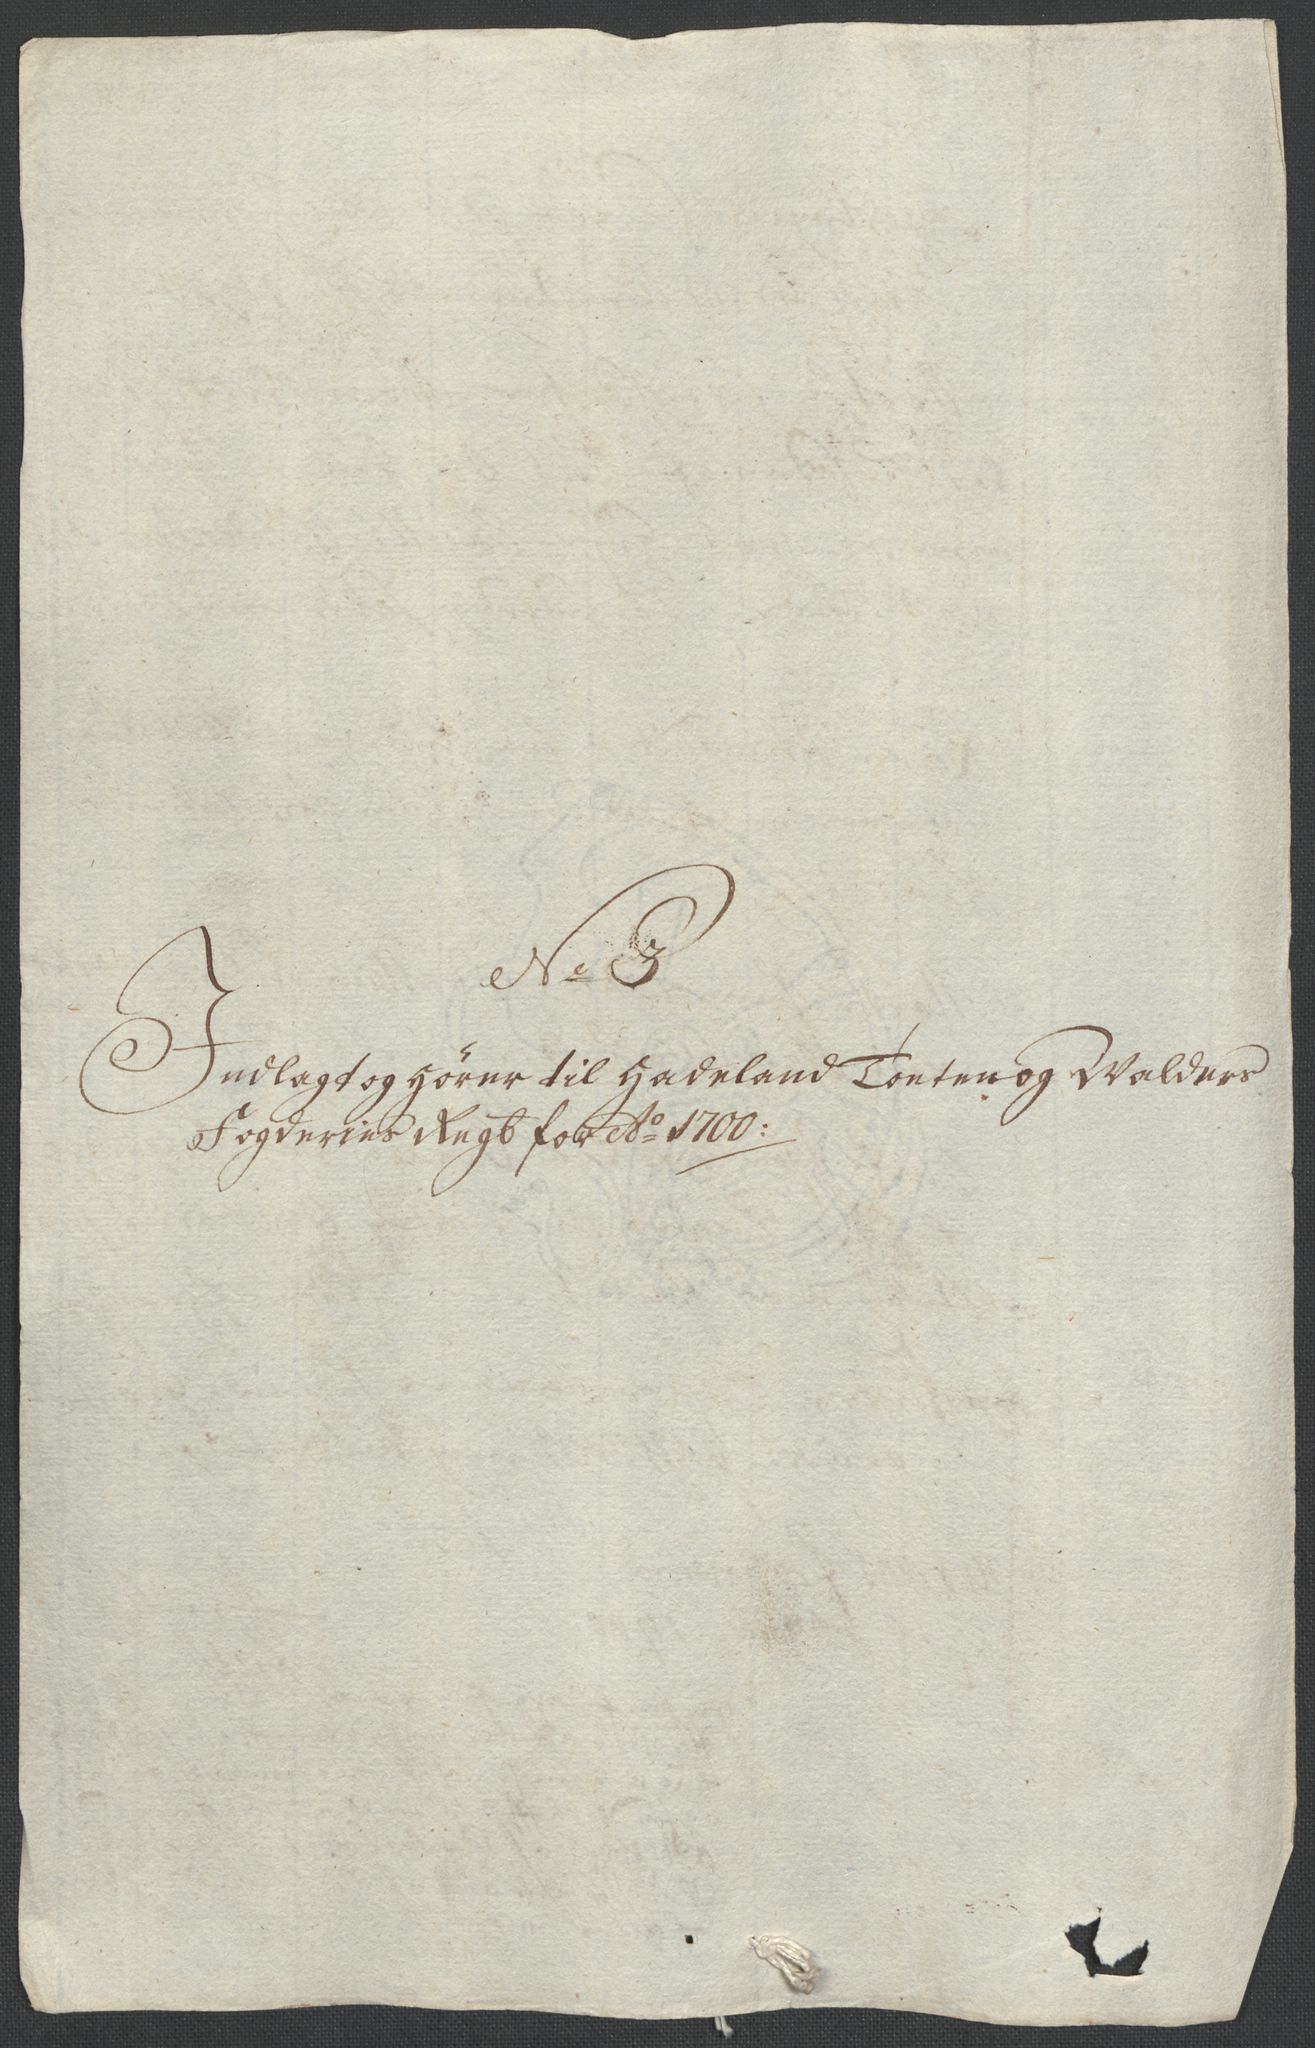 No 3
Indlagt og hörer til Hadeland Toeten og Walders
Fogderies Regb for Ao 1700: